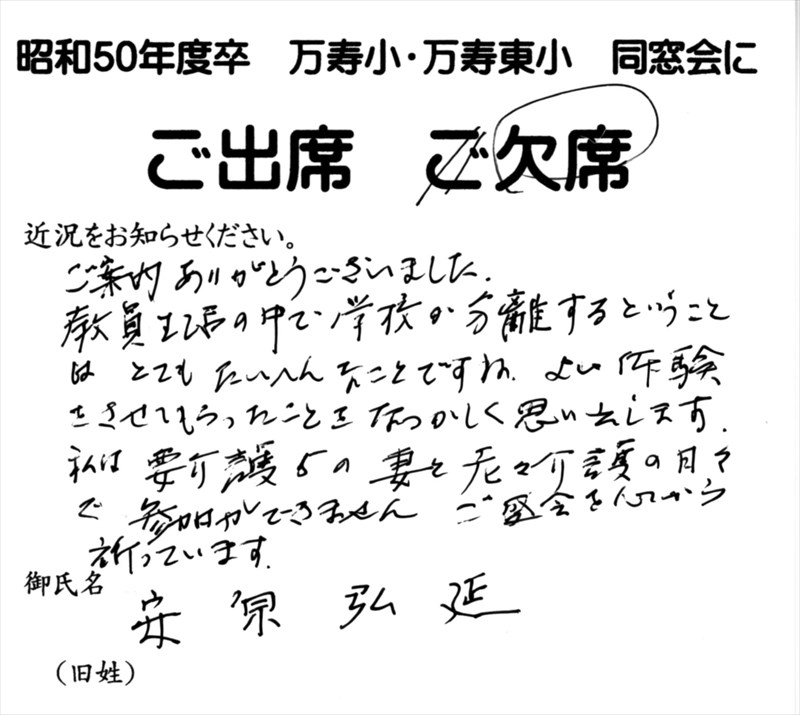 昭和50年度卒 万寿小・万寿東小 同窓会に
ご出席 ご欠席
近況をお知らせください。
ご案内ありがとうございました.
教員生活の中で学校が分離するということ
は とてもたいへんなことですね. よい体験
をさせてもらったことをなつかしく思い出します.
私は 要介護5の 妻と老々介護の日々
で 参加ができません ご盛会を心から
祈っています.
御氏名
安原 弘延
(旧姓)